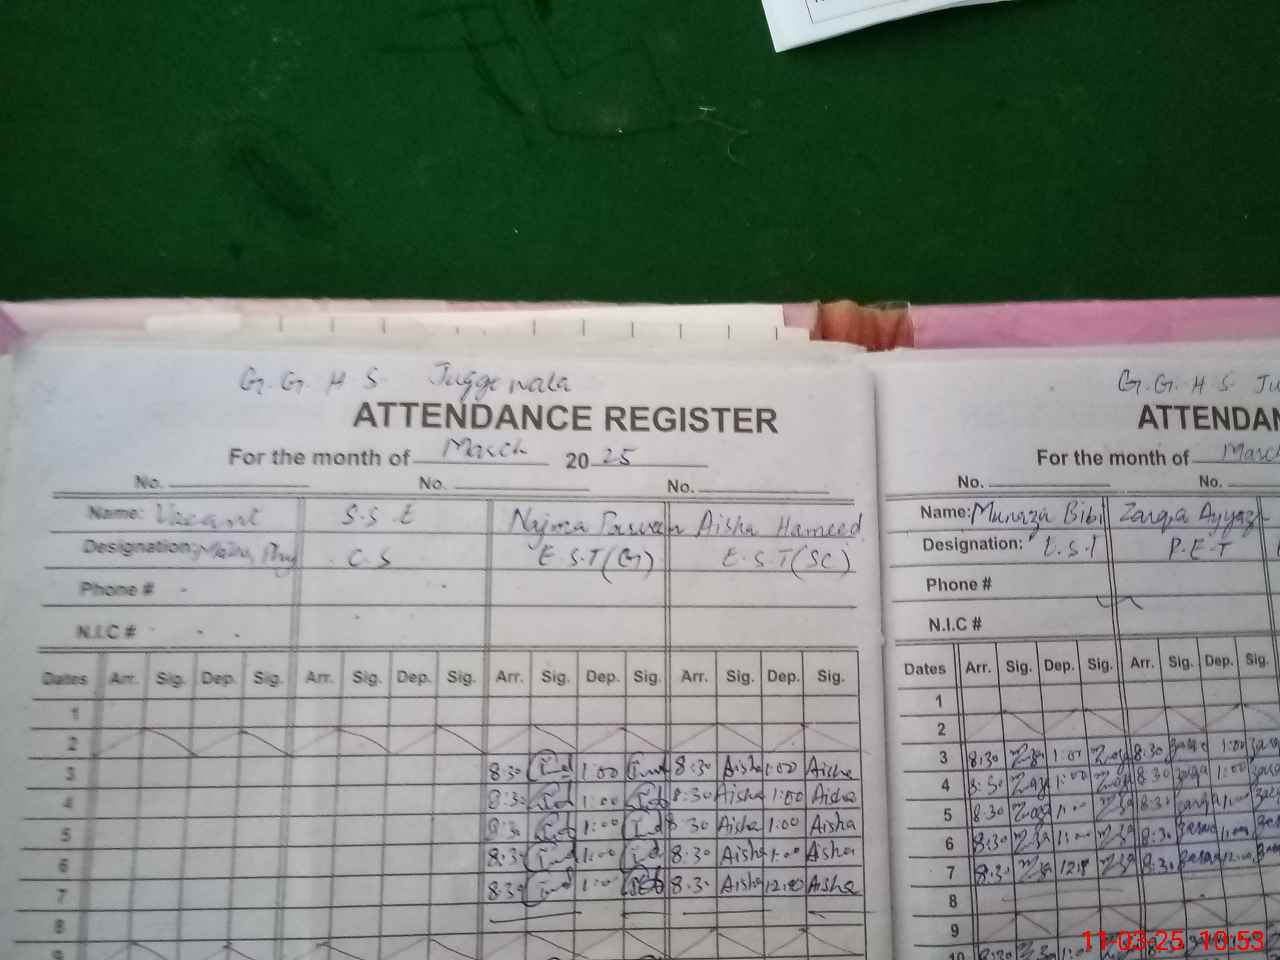 G.G.H.S. Juggewala
ATTENDANCE REGISTER
For the month of March 20 25
No. No. No.
Name: Vacant S.S.E Najma Parveen Aisha Hameed
Designation: Maths, Phy C.S E.S.T(G) E.S.T(SC)
Phone #
N.I.C #
Dates Arr. Sig. Dep. Sig. Arr. Sig. Dep. Sig. Arr. Sig. Dep. Sig. Arr. Sig. Dep. Sig.
1
2
3 8:30 1:00 8:30 Aisha 1:00 Aisha
4 8:30 1:00 8:30 Aisha 1:00 Aisha
5 8:30 1:00 8:30 Aisha 1:00 Aisha
6 8:30 1:00 8:30 Aisha 1:00 Aisha
7 8:30 1:00 8:30 Aisha 12:00 Aisha
8
9
G.G.H.S. Ju
ATTENDAN
For the month of March
No. No.
Name: Munaza Bibi Zarqa Ayyaz
Designation: E.S.T P.E.T
Phone #
N.I.C #
Dates Arr. Sig. Dep. Sig. Arr. Sig. Dep. Sig.
1
2
3 8:30 1:00 8:30 1:00
4 8:30 1:00 8:30 1:00
5 8:30 1:00 8:30 1:00
6 8:30 1:00 8:30 1:00
7 8:30 8:30 12:00
8
9
10 8:30
11-03-25 10:53